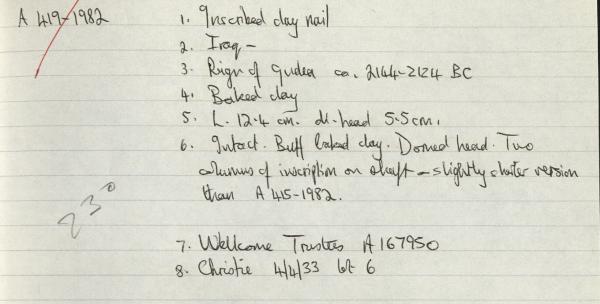 A 419-1982
1. Inscribed clay nail
2. Iraq -
3. Reign of Gudea ca. 2144-2124 BC
4. Baked clay
5. L. 12.4 cm. di. head 5.5 cm.
6. Intact. Buff baked clay. Domed head. Two
columns of inscription on shaft - slightly shorter version
than A 415-1982.
230
7. Wellcome Trustees A 167950
8. Christie 4/4/33 lot 6